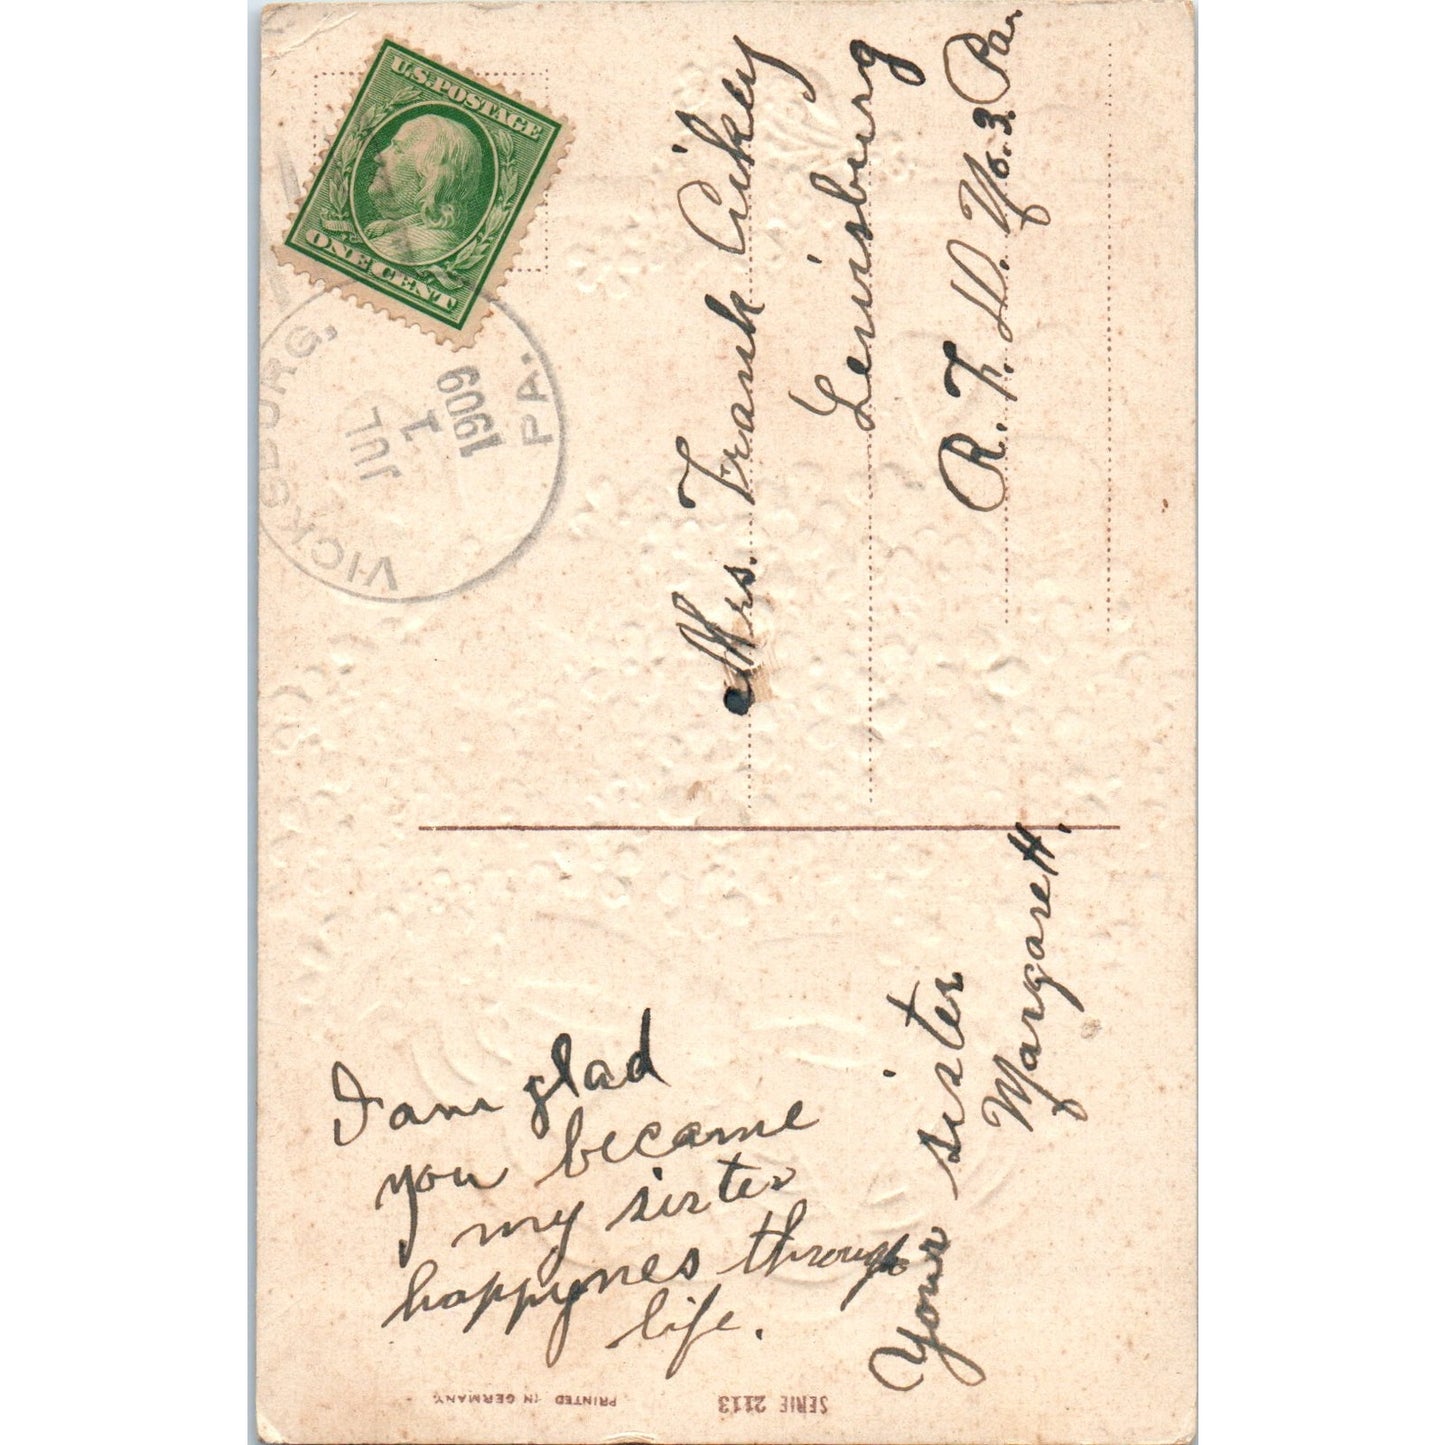 U.S. POSTAGE
ONE CENT
VICKSBURG,
PA.
JUL
1
1909
Mrs. Frank Aikey
Lewisburg
R. F. D. No. 3. Pa.
I am glad
you became
my sister
happynes through
life.
Your sister
Margaret H.
PRINTED IN GERMANY.
SERIE 2113